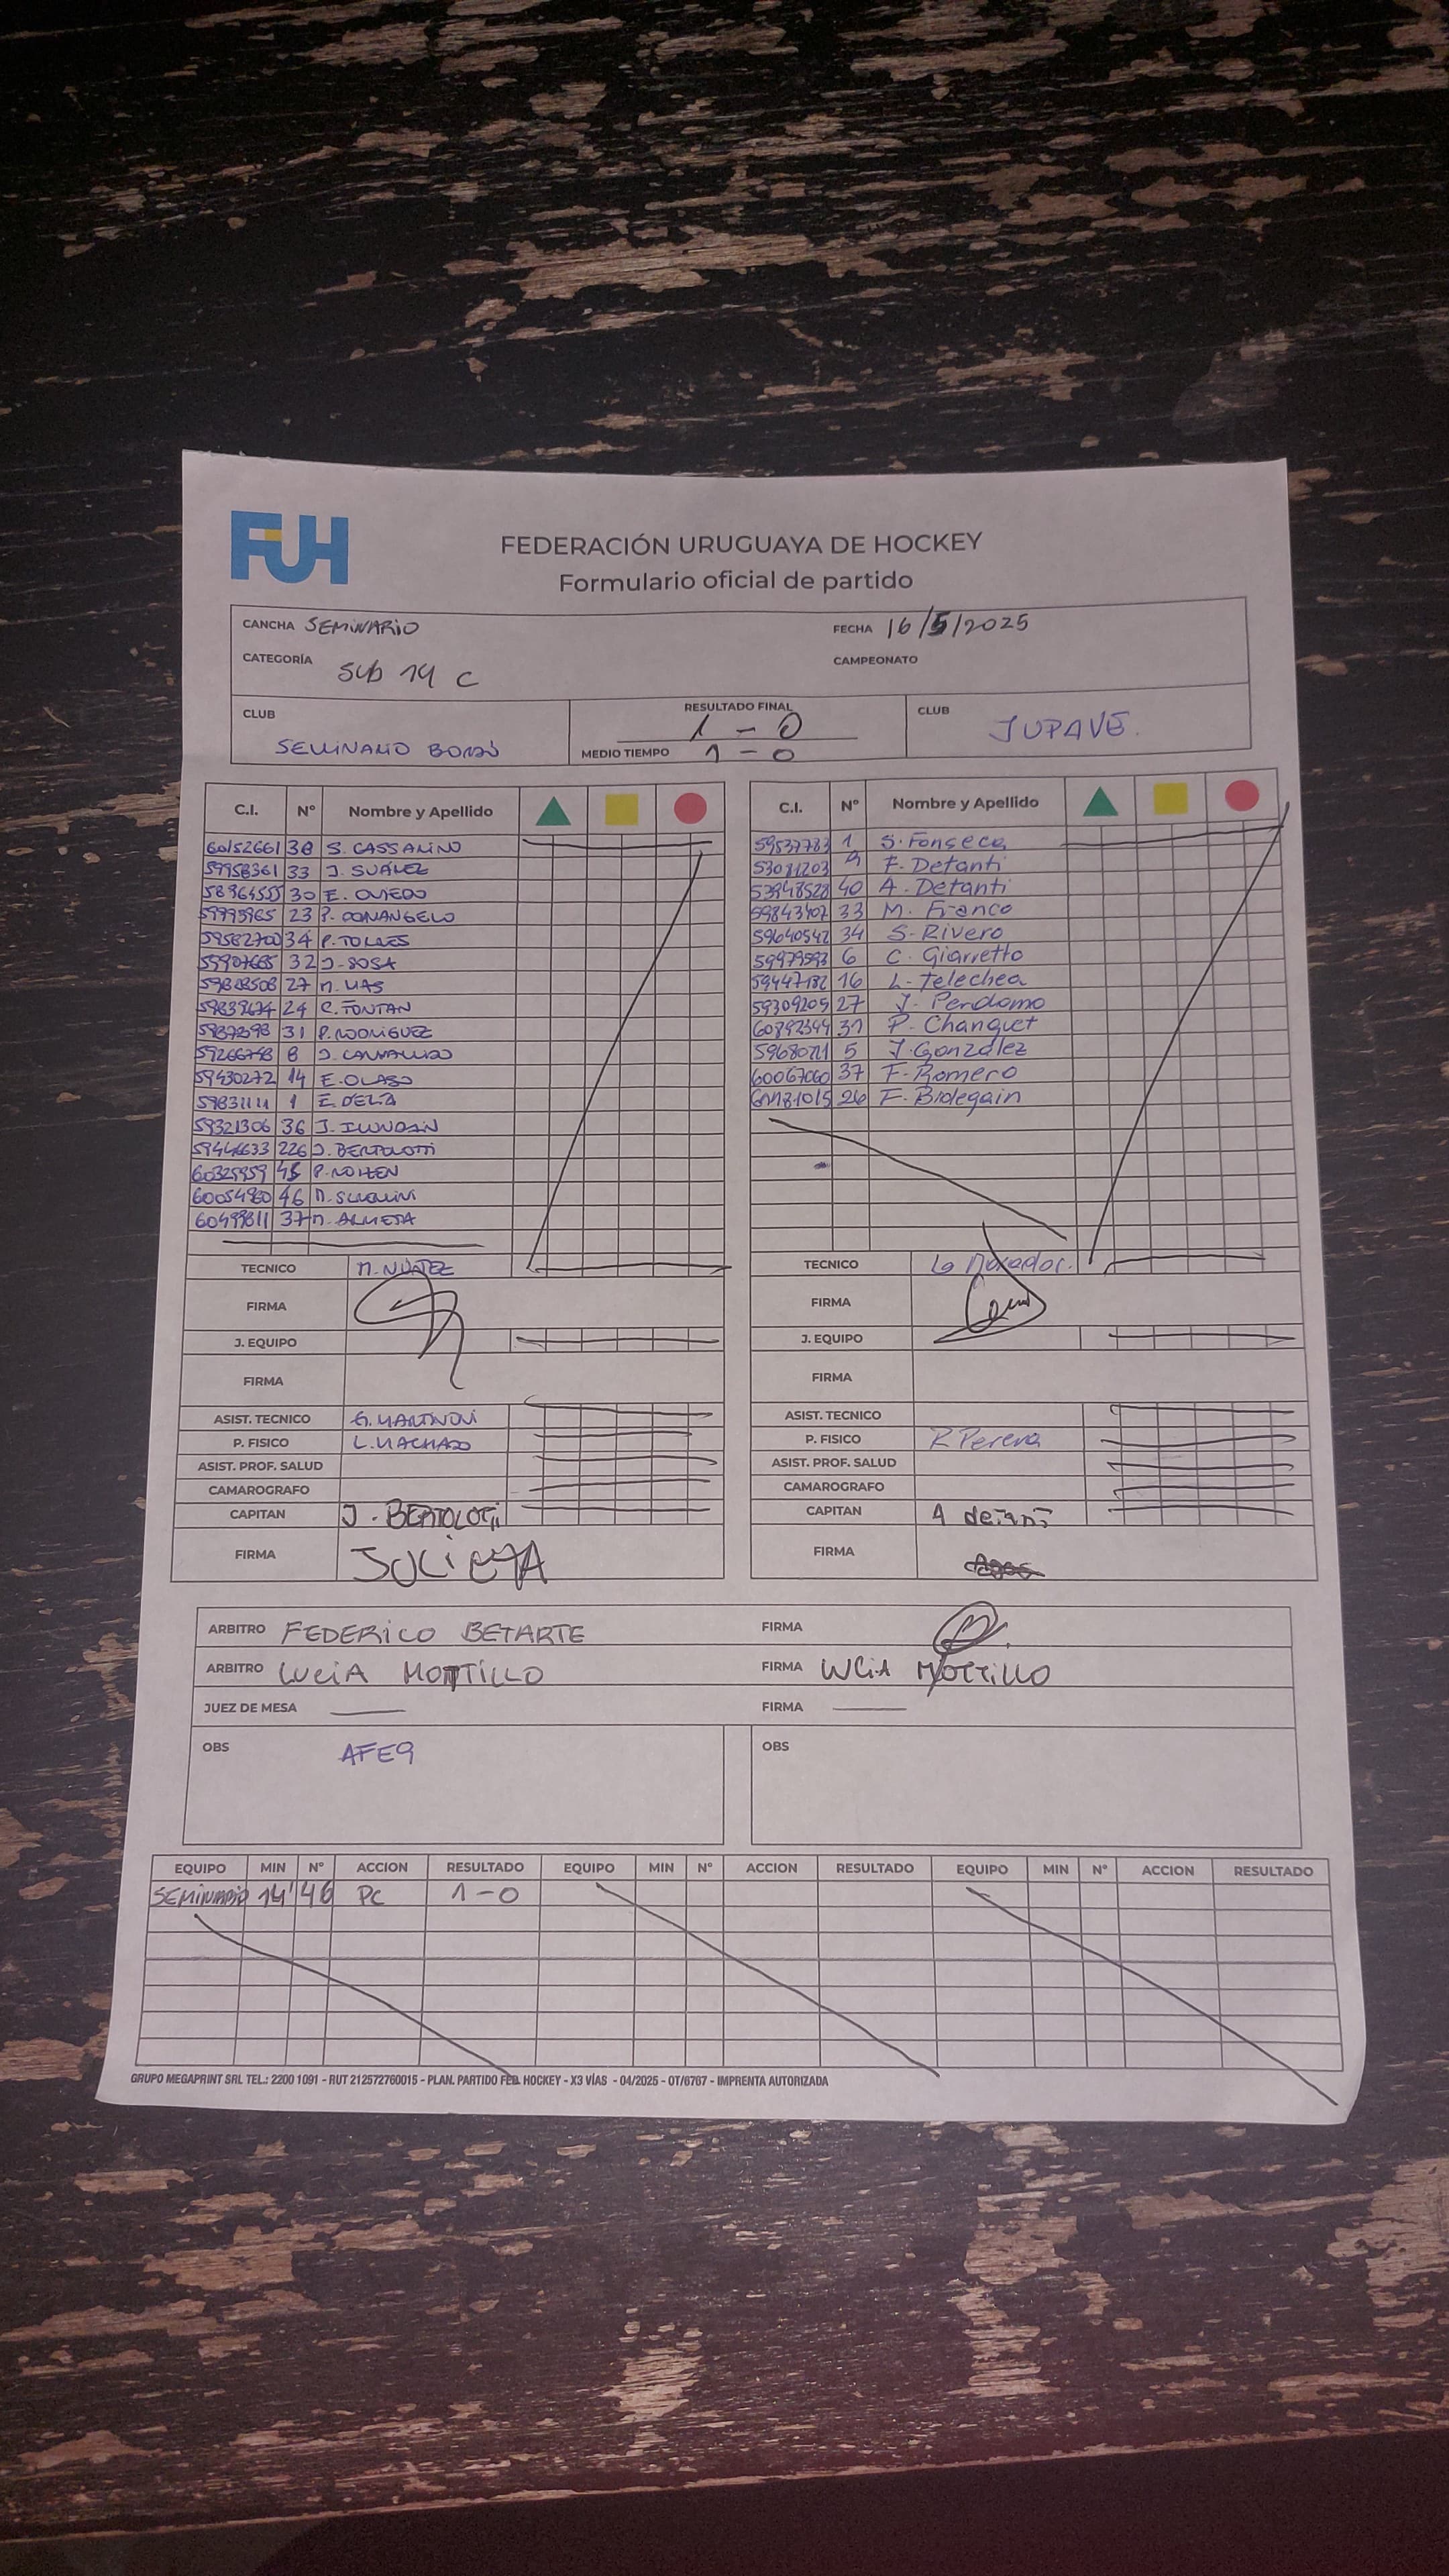 FUH
FEDERACIÓN URUGUAYA DE HOCKEY
Formulario oficial de partido
CANCHA SEMINARIO FECHA 16/5/2025
CATEGORÍA Sub 14 C CAMPEONATO
CLUB SEMINARIO RESULTADO FINAL 1 - 0 CLUB JUPAVE.
MEDIO TIEMPO 1 - 0
C.I. Nº Nombre y Apellido C.I. Nº Nombre y Apellido
60152661 38 S. CASSARINO 1 S. Fonseca
59958361 33 J. SUÁREZ F. Detanti
30 E. OVIEDO 40 A. Detanti
23 P. DONANGELO 59843407 33 M. Franco
59582700 34 P. TORRES 59640542 34 S. Rivero
32 J. SOSA 59979593 6 C. Giarretto
27 59447182 16 L. Telechea
24 C. FONTAN 59309205 27 J. Perdomo
31 P. RODRIGUEZ 60892344 31 P. Changuet
8 5 J. González
59430272 14 E. OLASO 60067060 37 F. Romero
59831111 1 E. DELIA 26 F. Bidegain
59321306 36 J. ILUNDAIN
59446633 226 J. BERTOLOTTI
60325959 45
60054960 46
60499811 37
TECNICO M. NÚÑEZ TECNICO
FIRMA FIRMA
J. EQUIPO J. EQUIPO
FIRMA FIRMA
ASIST. TECNICO ASIST. TECNICO
P. FISICO L. MACHADO P. FISICO
ASIST. PROF. SALUD ASIST. PROF. SALUD
CAMAROGRAFO CAMAROGRAFO
CAPITAN J. BERTOLOTTI CAPITAN
FIRMA JULIETA FIRMA
ARBITRO FEDERICO BETARTE FIRMA
ARBITRO LUCIA MOTTILLO FIRMA LUCIA MOTTILLO
JUEZ DE MESA FIRMA
OBS AFE9 OBS
EQUIPO MIN Nº ACCION RESULTADO EQUIPO MIN Nº ACCION RESULTADO EQUIPO MIN Nº ACCION RESULTADO
SEMINARIO 14' 46 PC 1-0
GRUPO MEGAPRINT SRL TEL.: 2200 1091 - RUT 212572760015 - PLAN. PARTIDO FED. HOCKEY - X3 VÍAS - 04/2025 - OT/6767 - IMPRENTA AUTORIZADA